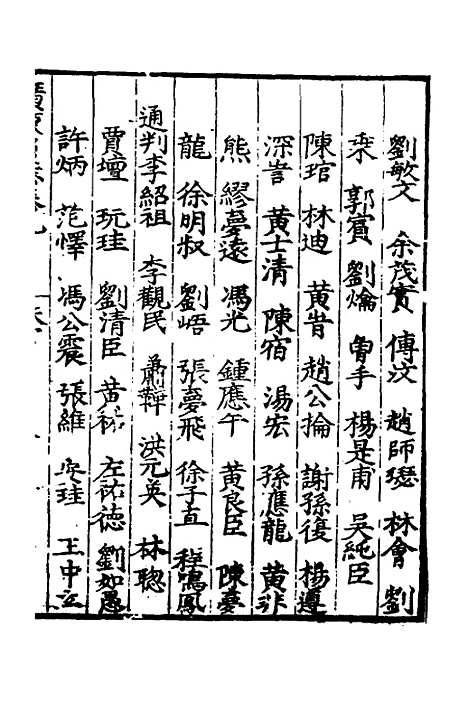 劉敏文 余茂實 傅汶 趙師 林會 劉
椉 郭賓 劉爚 曾手 楊是甫 吳純臣
陳琯 林迪 黃 趙公掄 謝孫復 楊遵
深 黃士清 陳宿 湯宏 孫應龍 黃非
熊 繆夢遠 馮光 鍾應午 黃良臣 陳夢
龍 徐明叔 劉 張夢飛 徐子直 程鳴鳳
通判李紹祖 李觀民 蕭 洪元英 林聦
賈壇 玩珪 劉清臣 黃 左祐德 劉如愚
許炳 范懌 馮公震 張維 安珪 王中立